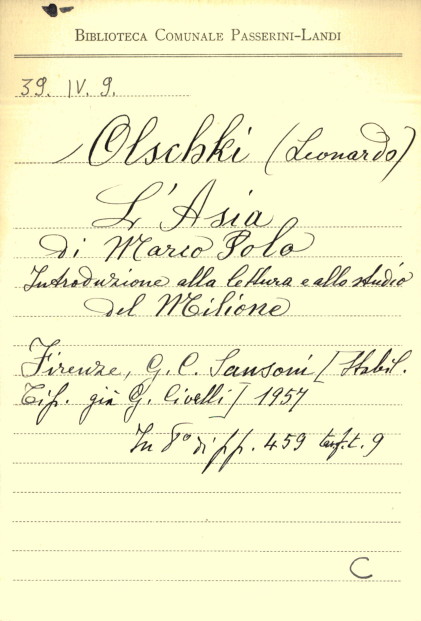 BIBLIOTECA COMUNALE PASSERINI-LANDI
39. IV. 9.
Olschki (Leonardo)
L'Asia
di Marco Polo
Introduzione alla lettura e allo studio
del Milione
Firenze, G. C. Sansoni [Stabil.
Tip. già G. Civelli] 1957
In 8° di pp. 459 t. 9
C